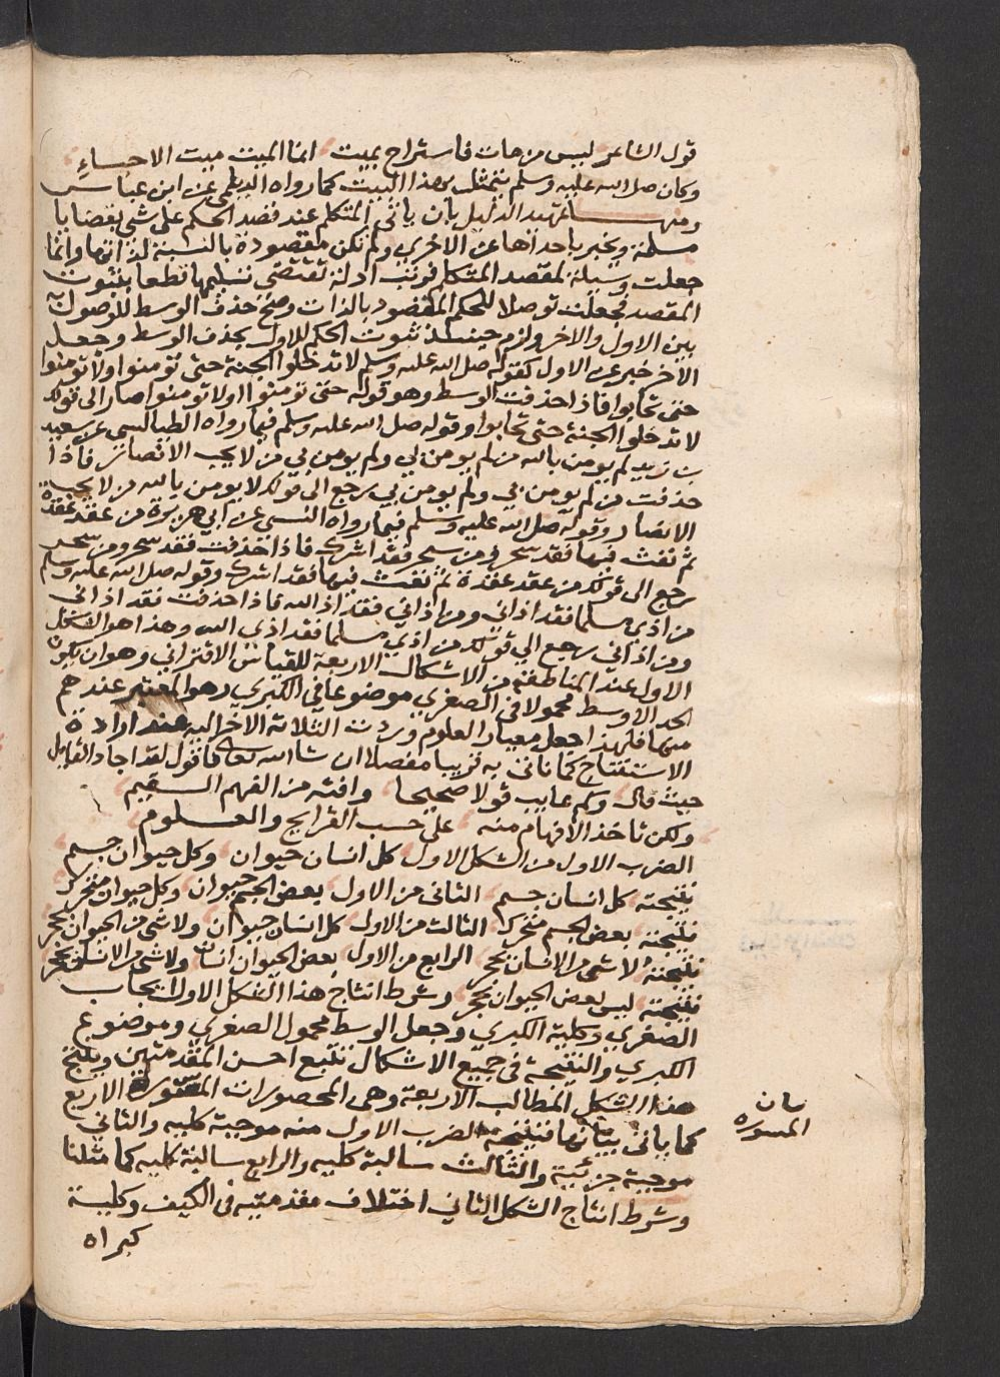 قول الشاعر ليس من مات فاستراح بميت انما الميت ميت الاحياء
وكان صلى الله عليه وسلم يتمثل بهذا البيت كما رواه الديلمي عن ابن عباس
ومنها تمهيد الدليل بان ياتي المتكلم عند قصد الحكم على شي بقضايا
مسلمة ويخبر باحداها عن الاخري ولم تكن مقصودة بالنسبة لذاتها وانما
جعلت وسيلة لمقصد المتكلم فرتب ادلة تقتضي تسليمها قطعا بثبوت
المقصد فجعلت توصلا للحكم المقصود بالذات وصح حذف الوسط للوصول به
بين الاول والاخر ولزم حينئذ ثبوت الحكم للاول بحذف الوسط وجعل
الاخر خبر عن الاول كقوله صلى الله عليه وسلم لا تدخلوا الجنة حتى تومنوا ولا تومنوا
حتى تحابوا فاذا حذفت الوسط وهو قوله حتى تومنوا ولا تومنوا صار الى قولك
لا تدخلوا الجنة حتى تحابوا وقوله صلى الله عليه وسلم فيما رواه الطيالسي عن سعيد
بن زيد لم يومن بالله من لم يومن بي ولم يومن بي من لا يحب الانصار فاذا
حذفت من لم يومن بي ولم يومن بي رجع الى قولك لا يومن بالله من لا يحب
الانصار وقوله صلى الله عليه وسلم فيما رواه النسي عن ابي هريرة من عقد عقدة
ثم نفث فيها فقد سحر ومن سحر فقد اشرك فاذا حذفت فقد سحر ومن سحر
رجع الى قولك من عقد عقدة ثم نفث فيها فقد اشرك وقوله صلى الله عليه وسلم
من اذي مسلما فقد اذاني ومن اذاني فقد اذا الله فاذا حذفت فقد اذاني
ومن اذاني رجع الي قولك من اذي مسلما فقد اذي الله وهذا هو الشكل
الاول عند المناطقة من الاشكال الاربعة للقياس الاقتراني وهو ان يكون
الحد الاوسط محمولا في الصغري موضوعا في الكبري وهو المعتبر عندهم
منها فلهذا جعل معيار العلوم وردت الثلاثة الاخر اليه عند ارادة
الاستنتاج كما تاتى به قريبا مفصلا ان شا الله تعالى فاقول لقد اجاد القايل
حيث قال وكم عايب قولا صحيحا وافته من الفهم السقيم
ولكن تاخذ الافهام منه على حسب القرايح والعلوم
الضرب الاول من الشكل الاول كل انسان حيوان وكل حيوان جسم
نتيجته كل انسان جسم الثانى من الاول بعض الجسم حيوان وكل حيوان متحرك
نتيجته بعض الجسم متحرك الثالث من الاول كل انسان حيوان ولا شي من الحيوان بحجر
نتيجته لا شي من الانسان بحجر الرابع من الاول بعض الحيوان انسان ولا شي من الانسان بحجر
نتيجته ليس بعض الحيوان بحجر وشرط انتاج هذا الشكل الاول ايجاب
الصغري وكلية الكبري وجعل الوسط محمول الصغري وموضوع
الكبري والنتيجة في جميع الاشكال تتبع احسن المقدمتين وينتج
هذا الشكل المطالب الاربعة وهي المحصورات المسورة الاربع
كما ياتى بيانها فنتيجة الضرب الاول منه موجبة كليه والثاني
موجبة جزئية والثالث سالبة كليه والرابع سالبة كليه كما مثلنا
وشرط انتاج الشكل الثاني اختلاف مقدمتيه في الكيف وكلية
كبراه
بيان
المسوره